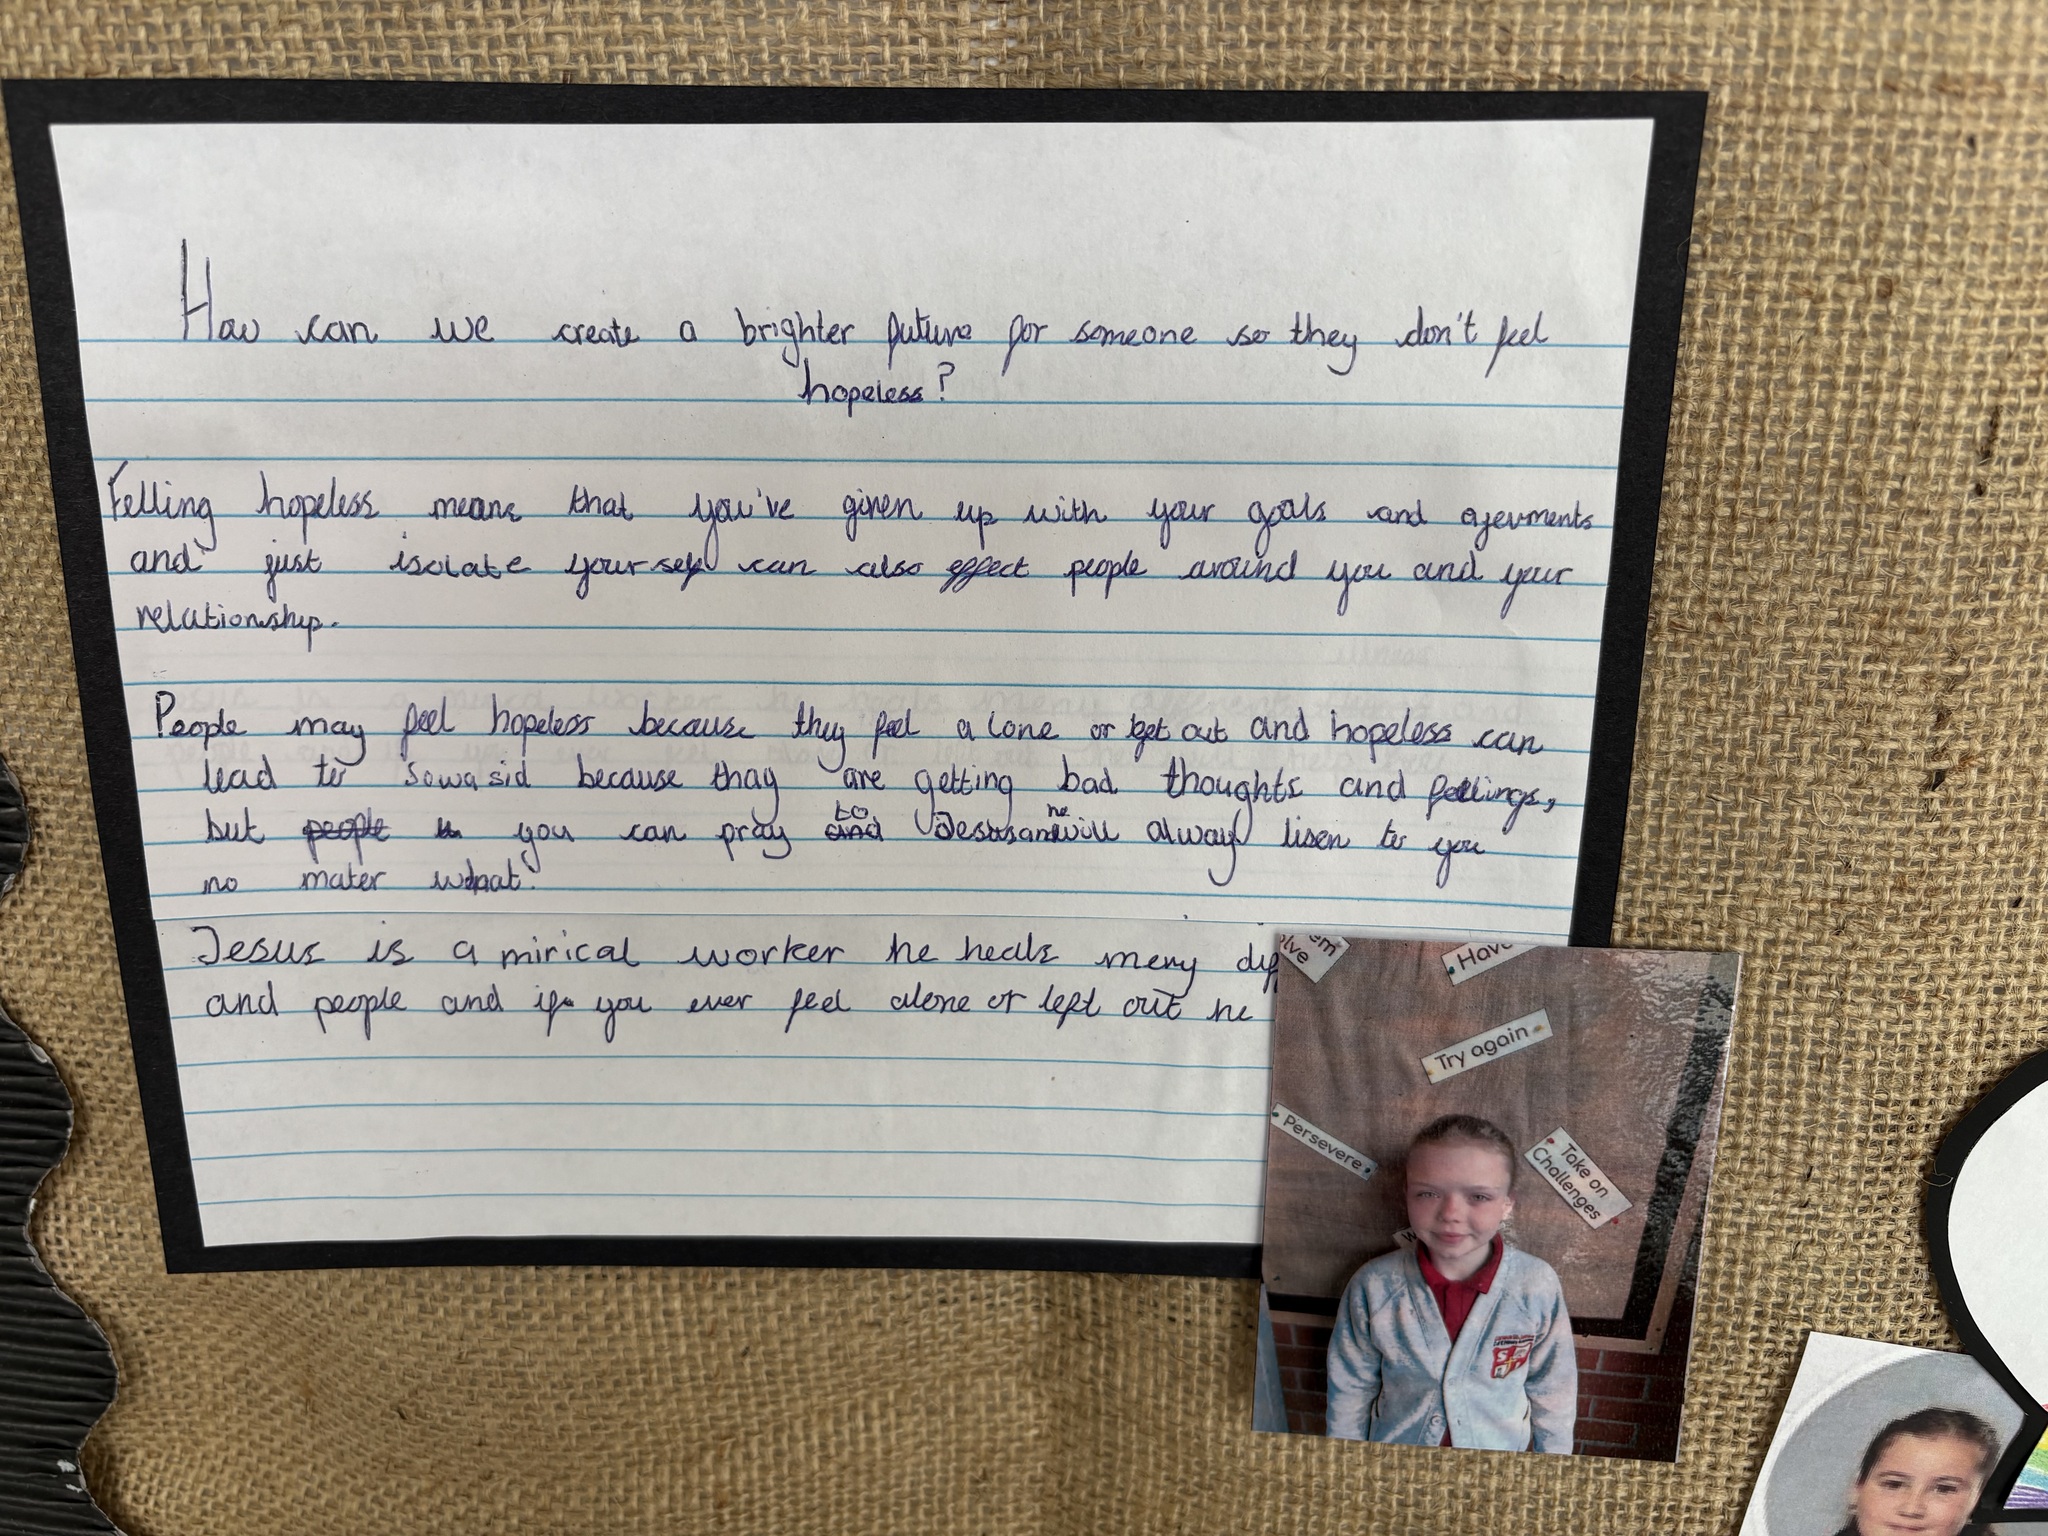 How can we create a brighter future for someone so they don't feel
hopeless?
Felling hopeless means that you've given up with your goals and ajevments
and just isolate your self can also effect people around you and your
relationship.
People may feel hopeless because they feel a lone or left out and hopeless can
lead to sowasid because thay are getting bad thoughts and feelings,
but people you can pray to Jesus he will alway lisen to you
no mater what.
Jesus is a mirical worker he heals meny diff
and people and if you ever feel alone or left out he
em
olve
Have
Try again
Persevere
Take on
Challenges
W